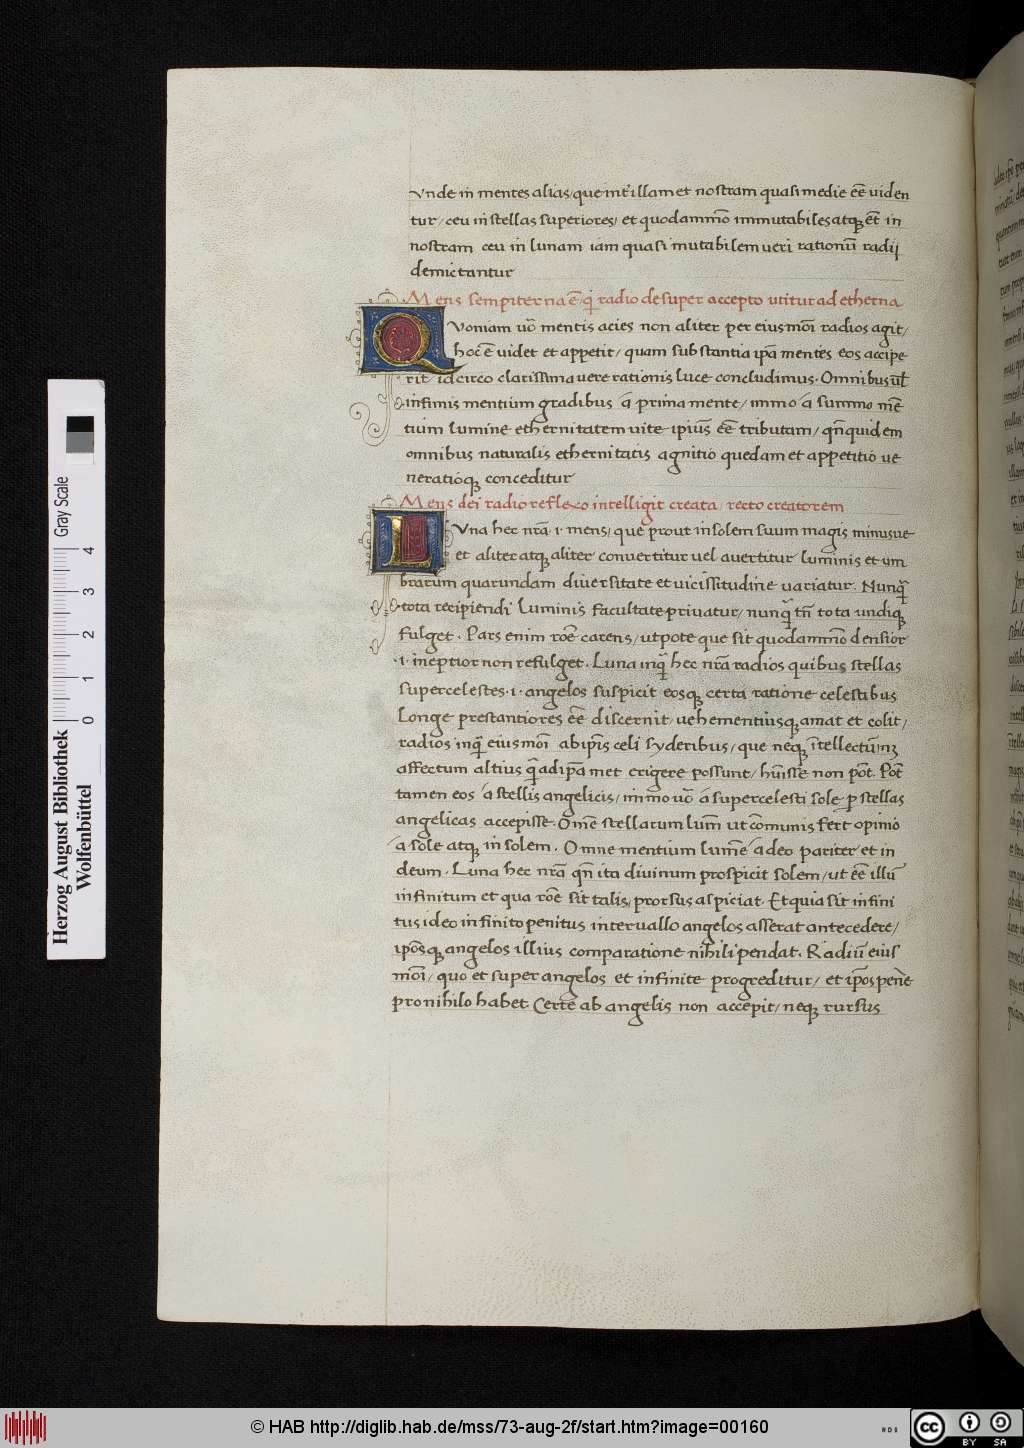 vnde in mentes alias/que int̄ illam et nostram quasi medie eē uiden
tur/ceu in stellas superiores/et quodammō immutabiles atqꝫ ēt in
nostram ceu in lunam iam quasi mutabilem ueri rationū radij
demictantur
Mens sempiterna ē qꝛ̄ radio desuper accepto utitur ad etherna
Quoniam uō mentis acies non aliter per eiusmōi radios agit/
hoc ē uidet et appetit/quam substantia ip̄a mentes eos accipe
rit idcirco clarissima uere rationis luce concludimus. Omnibus ul̄
infimis mentium gradibus a prima mente/immo a summo mē
tium lumine ethernitatem uite ipiūs eē tributam/qn̄quidem
omnibus naturalis ethernitatis agnitio quedam et appetitio ue
neratioqꝫ conceditur
Mens dei radio reflexo intelligit creata/recto creatorem
Luna hec nrā ·i· mens/que prout in solem suum magis minusue
et aliter atqꝫ aliter conuertitur uel auertitur luminis et um
brarum quarundam diuersitate et uicissitudine uariatur. Nunqꝫ̄
tota recipiendi luminis facultate priuatur/nunqꝫ̄ tn̄ tota undiqꝫ
fulget. Pars enim rōe carens/utpote que sit quodammō densior
·i· ineptior non refulget. Luna inqꝫ̄ hec nrā radios quibus stellas
supercelestes ·i· angelos suspicit eosqꝫ certa ratione celestibus
longe prestantiores eē discernit uehementiusqꝫ amat et colit/
radios inqꝫ̄ eiusmōi ab ip̄is celi syderibus/que neqꝫ ītellectum nꝫ
affectum altius qꝫ̄ ad ip̄amet erigere possunt/hūisse non pōt. Pōt
tamen eos a stellis angelicis/immo uō a supercelesti sole p̱ stellas
angelicas accepisse. Omē stellarum lum̄ ut cōmunis fert opinio
a sole atqꝫ in solem. Omne mentium lumē a deo pariter et in
deum. Luna hec nrā qn̄ ita diuinum prospicit solem/ut eē illū
infinitum et qua rōe sit talis/prorsus aspiciat. Et quia sit infini
tus ideo infinito penitus interuallo angelos asserat antecedere/
ipōsqꝫ angelos illius comparatione nihili pendat. Radiū eius
mōi/quo et super angelos et infinite progreditur/et ip̄os pene
pro nihilo habet certe ab angelis non accepit/neqꝫ rursus
Herzog August Bibliothek
Wolfenbüttel
Gray Scale
0 1 2 3 4
© HAB http://diglib.hab.de/mss/73-aug-2f/start.htm?image=00160
cc BY SA